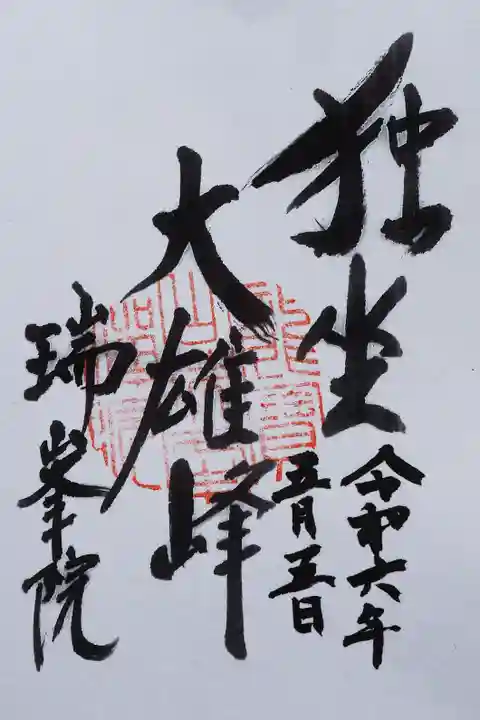 独坐
大雄峰
令和六年
五月五日
瑞峯院